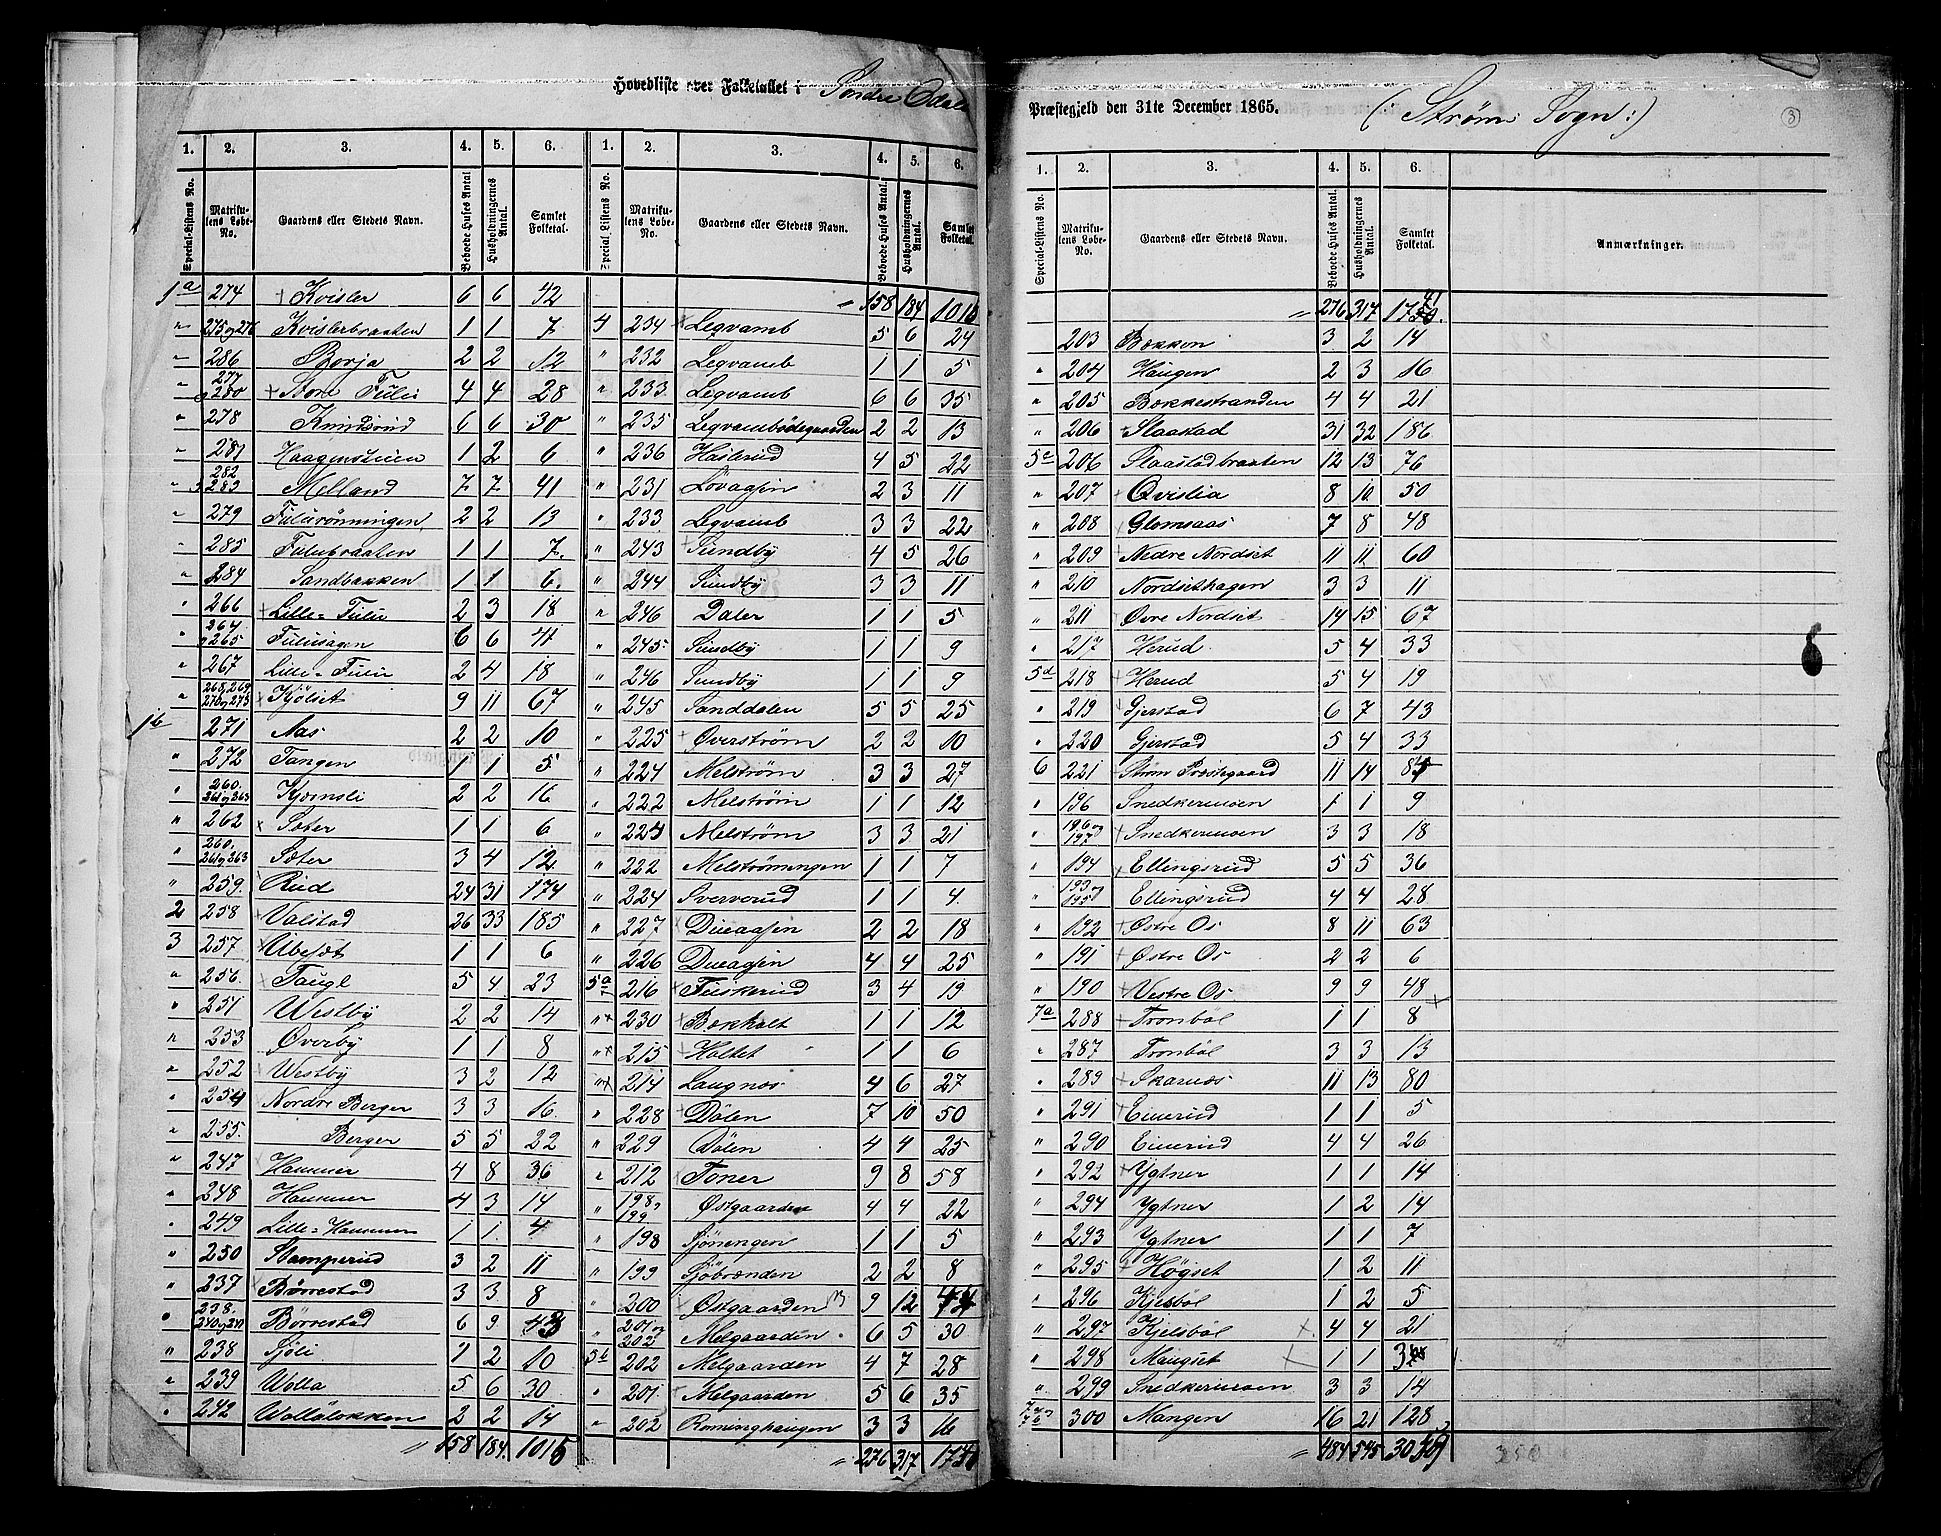 Hovedliste over Folketallet i Søndre Odalen
Præstegjeld den 31te December 1865. (: Strøm Sogn :)
3
1. 2. 3. 4. 5. 6. 1. 2. 3. 4. 5. 6.
Special-Listens No. Matrikulens Løbe-No. Gaardens eller Stedets Navn. Beboede Huses Antal Husholdningernes Antal. Samlet Folketal. Special-Listens No. Matrikulens Løbe-No. Gaardens eller Stedets Navn. Beboede Huses Antal. Husholdningernes Antal. Samlet Folketal.
1a 274 Kvisler 6 6 42
" 275 og 276 Kvislerbraaten 1 1 7
" 286 Borja 2 2 12
" 277 280 Store Fulu 4 4 28
" 278 Knudsrud 6 6 30
" 281 Haagenstuen 1 2 6
" 282 283 Melland 7 7 41
" 279 Fulurønningen 2 2 13
" 285 Fulubraaten 1 1 7
" 284 Sandbakken 1 1 6
" 266 Lille-Fulu 2 3 18
" 264 265 Fuluhagen 6 6 41
" 267 Lille-Fulu 2 4 18
" 268, 269 270 og 273 Kjølset 9 11 67
1b 271 Aas 2 2 10
" 272 Tangen 1 1 5
" 260. 261 og 263 Kjernsli 2 2 16
" 262 Sæter 1 1 6
" 260. 261 og 263 Sæter 3 4 12
" 259. Rud 24 31 174
2 258 Valstad 26 33 185
3 257 Ubesæt 1 1 6
" 256. Taugl 5 4 23
" 251 Westby 2 2 14
" 253 Øverby 1 1 8
" 252 Westby 3 2 12
" 254 Nordre Berger 3 3 16
" 255. Berger 5 5 22
" 247 Hammer 4 8 36
" 248 Hammer 4 3 14
" 249 Lille-Hammer 1 1 4
" 250 Stomperud 3 2 11
" 237 Børrestad 3 3 8
" 238. 240 og 241 Børrestad 6 9 43
" 238 Sjøli 1 2 10
" 239 Wølla 5 6 30
" 242 Wølløløkken 2 2 14
" 158 184 1015
" 158 184 1015
4 234 Legvamb 5 6 24
" 232 Legvamb 1 1 5
" 233. Legvamb 6 6 35
" 235 Legvambødegaarden 2 2 13
" 236 Haslerud 4 5 22
" 231 Løvaasen 2 3 11
" 233 Legvamb 3 3 22
" 243 Sundby 4 5 26
" 244 Sundby 3 3 11
" 246 Daler 1 1 5
" 245 Sundby 1 1 9
" 246 Sundby 1 1 9
" 245 Sanddalen 5 5 25
" 225 Øverstrøm 2 2 10
" 224 Melstrøm 3 3 27
" 222 Melstrøm 1 1 12
" 223 Melstrøm 3 3 21
" 222 Melstrømengen 1 1 7
" 224 Sververud 1 1 4
" 227 Dueaasen 2 2 18
" 226 Dueaasen 4 4 25
5a 216 Fuskerud 3 4 19
" 230 Bokholt 1 1 12
" 215 Holtet 1 1 6
" 214 Laugnes 4 6 27
" 228 Dølen 7 10 50
" 229 Dølen 4 4 25
" 212 Toner 9 8 58
" 198 199 Østgaarden 4 4 22
" 198 Sjønengen 1 1 5
" 199 Sjøbrænden 2 2 8
" 200 Østgaarden 9 12
" 201 og 202 Melgaarden 6 5 30
5b 202 Melgaarden 4 7 28
" 201 Melgaarden 5 6 35
" 202 Rominghaugen 3 3 16
" 276 317
1. 2. 3. 4. 5. 6.
Special-Listens No. Matrikulens Løbe-No. Gaardens eller Stedets Navn. Beboede Huses Antal. Husholdningernes Antal. Samlet Folketal. Anmærkninger.
" 276 317 1741
203 Bokken 3 2 14
" 204 Haugen 2 3 16
" 205 Bokkestranden 4 4 21
" 206 Slaastad 31 32 186
5c 206 Slaastadbraaten 12 13 76
" 207 Qvislia 8 10 50
" 208 Glomsaas 7 8 48
" 209 Nedre Nordset 11 11 60
" 210 Nordsethagen 3 3 11
" 211 Øvre Nordset 14 15 67
" 217 Herud 5 4 33
5d 218 Herud 5 4 19
" 219 Gjerstad 6 7 43
" 220 Gjerstad 5 4 33
6 221 Strøm Præstegaard 11 14
" 196 Snedkermoen 1 1 9
" 196 og 197 Snedkermoen 3 3 18
" 194 Ellingsrud 5 5 36
" 193 og 195 Ellingsrud 4 4 28
" 192 Østre Os 8 11 63
" 191 Østre Os 2 2 6
" 190 Vestre Os 9 9 48
7a 288 Tronbøl 1 1 8
" 287 Tronbøl 3 3 13
" 289 Skarnæs 11 13 80
" 291 Euerud 1 1 5
" 290 Euerud 4 4 26
" 292 Ygtner 1 1 14
" 294 Ygtner 1 2 14
" 293 Ygtner 1 1 7
" 295 Høgset 1 2 11
" 296 Kjelsbøl 1 2 5
" 297 Kjelsbøl 4 4 21
" 298 Mangset 1 1
" 299 Snedkermoen 3 3 14
300 Mangen 16 21 128
" 484 545
350